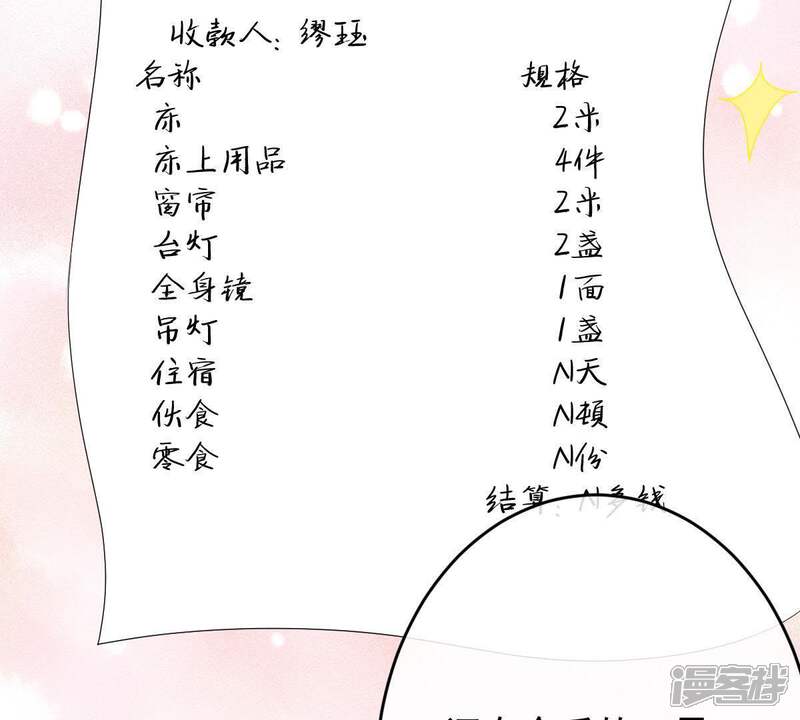 收款人：缪珏
名称 规格
床 2米
床上用品 4件
窗帘 2米
台灯 2盏
全身镜 1面
吊灯 1盏
住宿 N天
伙食 N顿
零食 N份
结算：N多钱
漫客栈